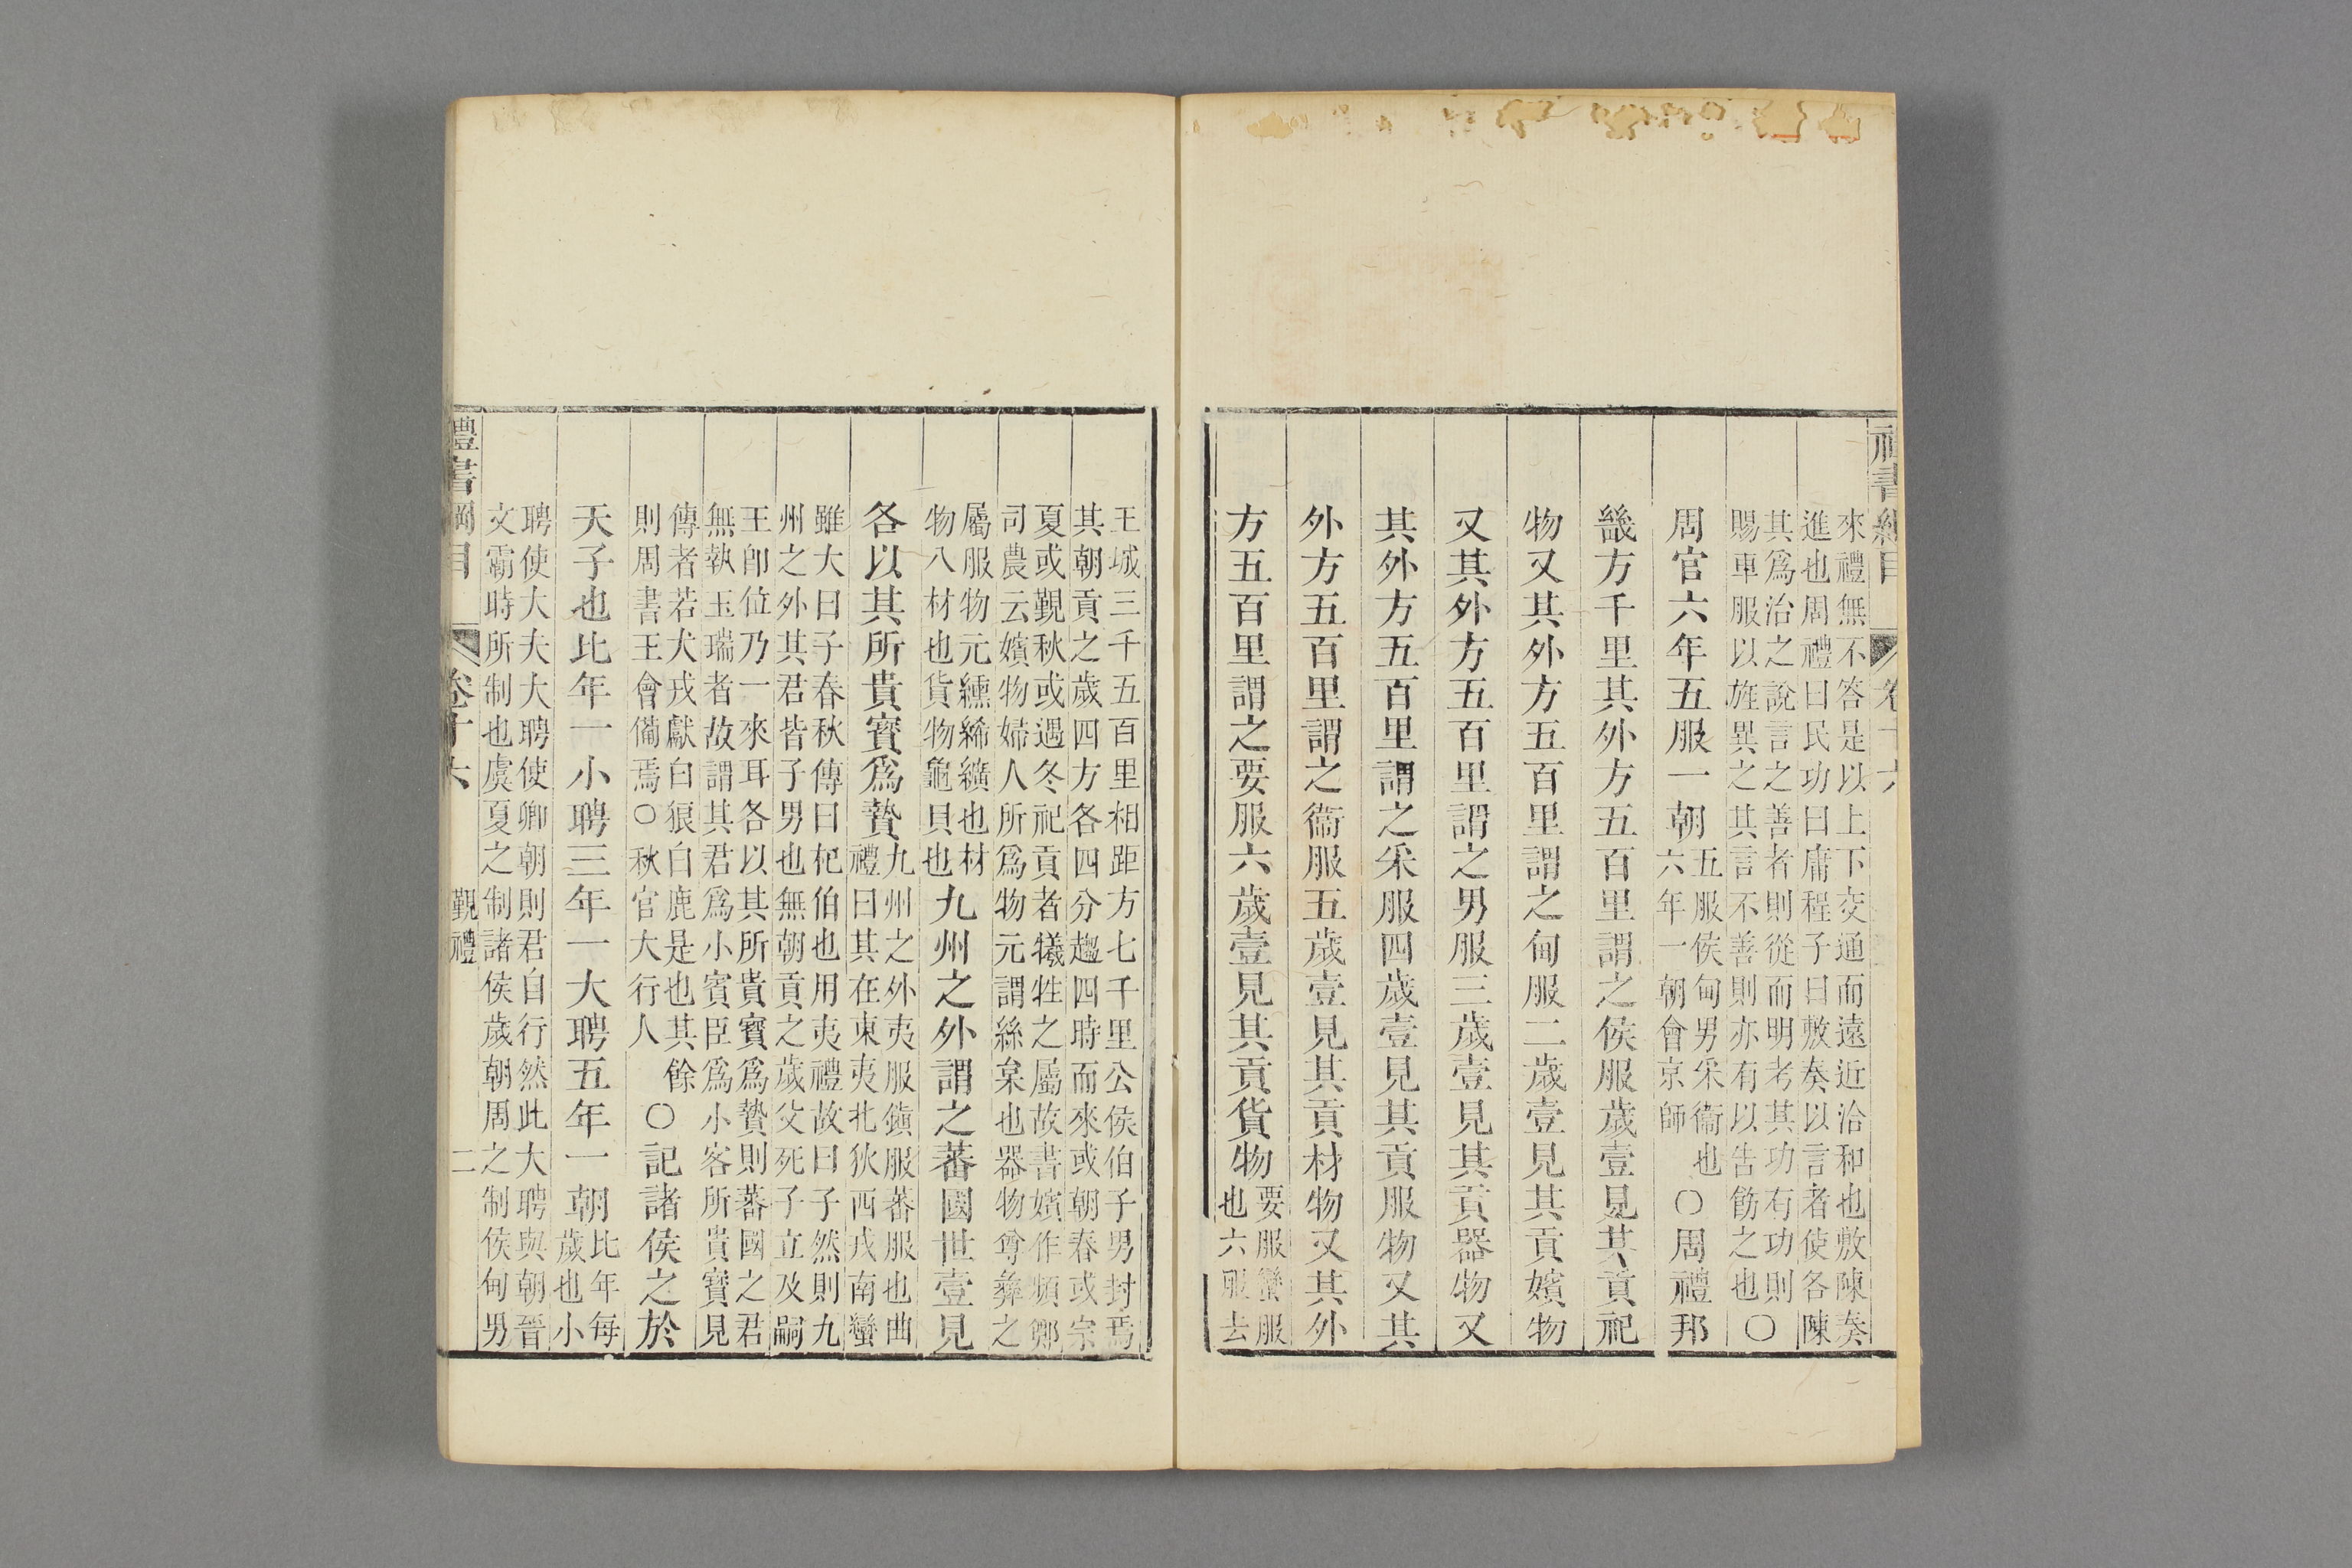 禮書綱目 卷十六
來禮無不答是以上下交通而遠近洽和也敷陳奏
進也周禮曰民功曰庸程子曰敷奏以言者使各陳
其爲治之說言之善者則從而明考其功有功則
賜車服以旌異之其言不善則亦有以告飭之也〇
周官六年五服一朝五服侯甸男采衞也
六年一朝會京師〇周禮邦
畿方千里其外方五百里謂之侯服歲壹見其貢祀
物又其外方五百里謂之甸服二歲壹見其貢嬪物
又其外方五百里謂之男服三歲壹見其貢器物又
其外方五百里謂之采服四歲壹見其貢服物又其
外方五百里謂之衞服五歲壹見其貢材物又其外
方五百里謂之要服六歲壹見其貢貨物要服蠻服
也六服去
王城三千五百里相距方七千里公侯伯子男封焉
其朝貢之歲四方各四分趨四時而來或朝春或宗
夏或覲秋或遇冬祀貢者犧牲之屬故書嬪作頻鄭
司農云嬪物婦人所爲物元謂絲枲也器物尊彝之
屬服物元纁絺纊也材
物八材也貨物龜貝也九州之外謂之蕃國世壹見
各以其所貴寶爲贄九州之外夷服鎮服蕃服也曲
禮曰其在東夷北狄西戎南蠻
雖大曰子春秋傳曰杞伯也用夷禮故曰子然則九
州之外其君皆子男也無朝貢之歲父死子立及嗣
王卽位乃一來耳各以其所貴寶爲贄則蕃國之君
無執玉瑞者故謂其君爲小賓臣爲小客所貴寶見
傳者若犬戎獻白狼白鹿是也其餘
則周書王會備焉〇秋官大行人〇記諸侯之於
天子也比年一小聘三年一大聘五年一朝比年每
歲也小
聘使大夫大聘使卿朝則君自行然此大聘與朝晉
文霸時所制也虞夏之制諸侯歲朝周之制侯甸男
禮書綱目 卷十六 覲禮 二